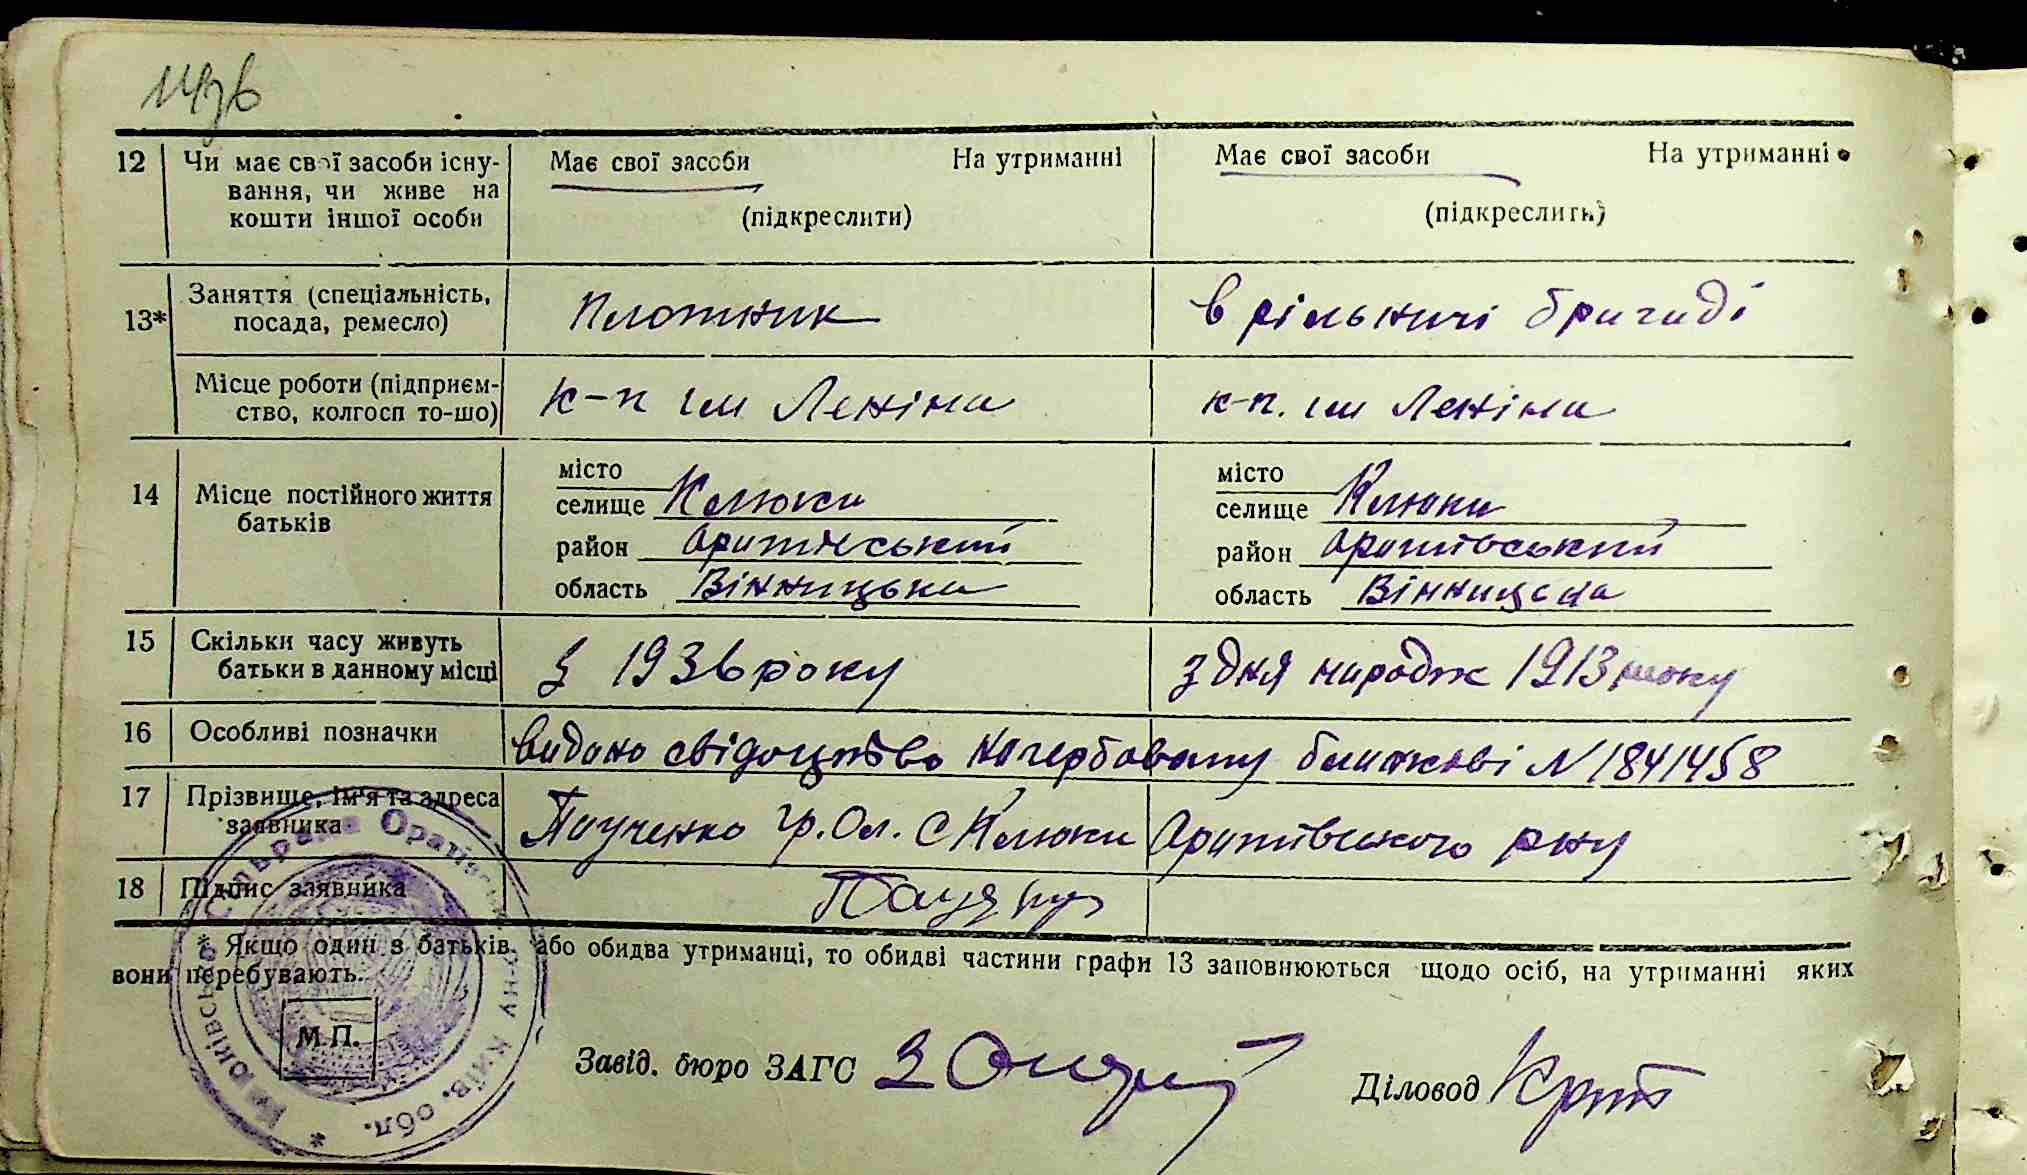 12 Чи має свої засоби існу- Має свої засоби На утриманні Має свої засоби На утриманні
вання, чи живе на
кошти іншої особи (підкреслити) (підкреслить)
13* Заняття (спеціальність, Плотник в рільничі бригаді
посада, ремесло)
Місце роботи (підприєм- к-п ім Леніна к-п. ім Леніна
ство, колгосп то-що)
місто місто
14 Місце постійного життя селище Клюки селище Клюки
батьків район Оратівський район Оратівський
область Вінницька область Вінницька
15 Скільки часу живуть з 1936 року з дня народж 1913 року
батьки в данному місці
16 Особливі позначки видано свідоцтво на гербовану бланкові N 1841458
17 Прізвище, ім'я та адреса
заявника гр. Ол. с Клюки Оратівського рну
18 Підпис заявника
* Якщо один в батьків, або обидва утриманці, то обидві частини графи 13 заповнюються щодо осіб, на утриманні яких
вони перебувають.
М.П.
Завід. бюро ЗАГС Діловод
Сільрада Оратівськ. р-ну Київ. обл.